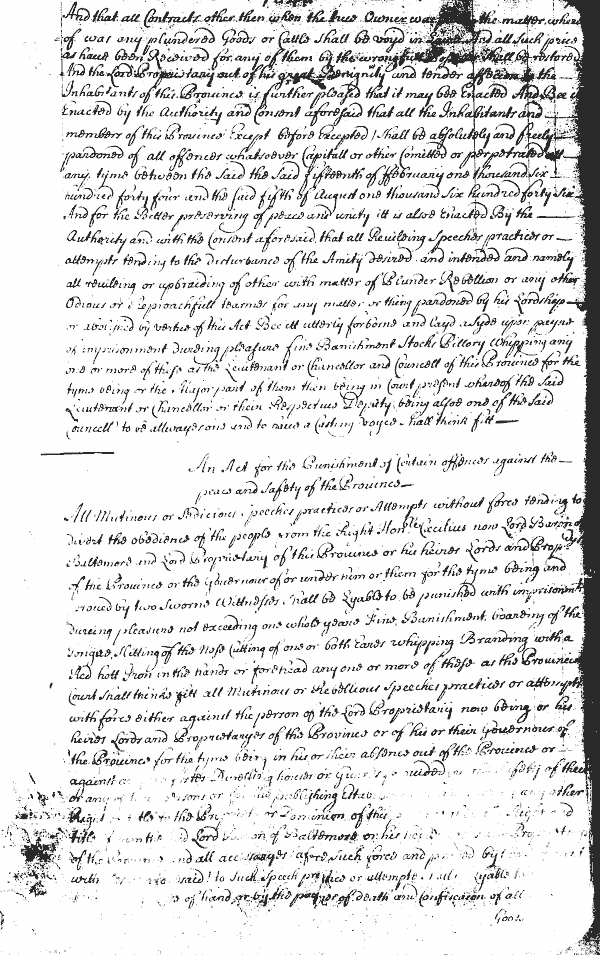 And that all Contracts other then when the true Owner was the matter where
of was any plundered Goods or Cattle shall be voyd in And all Such price
as have been Received for any of them by the wrongfull shall be restored
And the Lord Proprietary out of his great Benignity and tender affeccon to the
Inhabitants of this Province is further pleased that it may bee Enacted And Bee it
Enacted by the Authority and Consent aforesaid that all the Inhabitants and
members of this Province Except before Excepted Shall be absolutely and freely
pardoned of all offences whatsoever Capitall or other Comitted or perpetrated att
any tyme between the Said the Said fifteenth of ffebruary one thousand six
hundred forty four and the said fifth of August one thousand Six hundred forty Six
And for the Better preserving of peace and unity itt is alsoe Enacted By the
Authority and with the Consent aforesaid that all Reviling Speeches practices or
attempts tending to the disturbance of the Amity desired and intended and namely
all reviling or upbraiding of other with matter of Plunder Rebellion or any other
Odious or Reproachfull tearmes for any matter or thing pardoned by his Lordship
or by vertue of this Act Bee itt utterly forborne and layd asyde upon payne
of imprisonment dureing pleasure fine Banishment Stocks Pillory Whipping any
one or more of these as the Leiutenant or Chancellor and Councell of this Province for the
tyme being or the Major part of them then being in Court present whereof the Said
Leiutenant or Chancellor or their Respective Deputy being alsoe one of the Said
Councell to be allwayes one and to have a Casting voyce shall think fitt
An Act for the Punishment of Certain offences against the
peace and Safety of the Province
All Mutinous or Sedicious Speeches practices or Attempts without force tending to
divert the obedience of the people from the Right Honble Cecilius now Lord Baron of
Baltemore and Lord Proprietary of this Province or his heires Lords and Proprys
of the Province or the Governour of or under him or them for the tyme being and
proved by two Sworne Witnesses shall be Lyable to be punished with imprisonmt
dureing pleasure not exceeding one whole yeare Fine, Banishment, boareing of the
tongue, Slitting of the Nose Cutting of one or both Eares whipping Branding with a
Red hott Iron in the hands or forehead any one or more of these as the Provinciall
Court Shall thinke fitt all Mutinous or Rebellious Speeches practices or attempts
with force either against the person of the Lord Proprietary now being or his
heires Lords and Proprietaryes of the Province or of his or their Governour of
the Province for the tyme being in his or their absence out of the Province or
against Dwelling houses or of them
or any persons or publishing other
Right title to the or Dominion of this
title and Lord of Baltemore or his
of the Province and all accessaryes afore Such force and proved by
with said to Such Speech practice or attempt Lyable to
of hand or by the paynes of death and Confiscacon of all
Goods